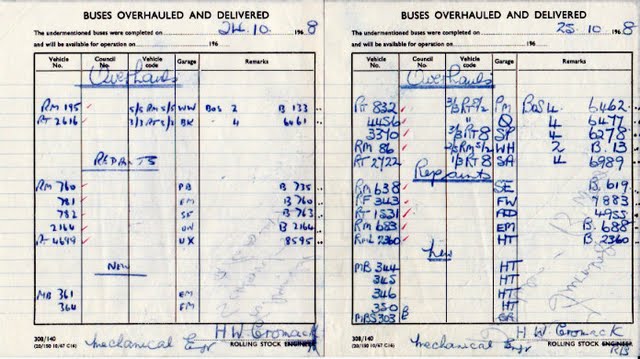 BUSES OVERHAULED AND DELIVERED
The undermentioned buses were completed on 24.10. 196 8
and will be available for operation on 196
Vehicle No. Council No. Vehicle code Garage Remarks
Overhauls
RM 195 5/5 RM 5/5 WW BOS 2 B 133
RT 2616 3/3 RT 3/2 BK " 4 6461
REPAINTS
RM 760 PB B 735
781 FM B 760
782 SF B 763
2164 OW B 2164
RT 4699 UX 8595
NEW
MB 361 EM
364 FM
308/140
(20/150 10/67 C16)
Mechanical Engr
H W Cromack
ROLLING STOCK ENGINEER
BUSES OVERHAULED AND DELIVERED
The undermentioned buses were completed on 25.10. 196 8
and will be available for operation on 196
Vehicle No. Council No. Vehicle code Garage Remarks
Overhauls
RT 832 PM BOS 4 6462
4456 " Q 4 6477
3370 3/3 RT 8 SP 4 6278
RM 86 WH 2 B. 13
RT 2722 1/3 RT 8 SA 4 6989
Repaints
RM 638 SE B. 619
RF 343 FW 7883
RT 1831 AD 4955
RM 683 EM B. 688
RML 2360 HT B 2360
New
MB 344 HT
345 HT
346 HT
350 HT
MBS 303 B
308/140
(20/150 10/67 C16)
Mechanical Engr
H W Cromack
ROLLING STOCK ENGINEER